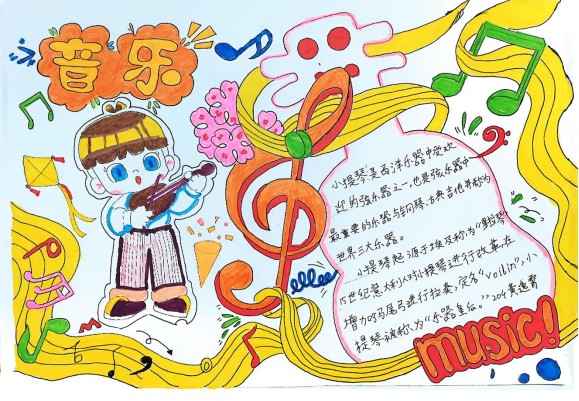 音乐
小提琴是西洋乐器中受欢
迎的弦乐器之一,也是弦乐器中
最重要的乐器与钢琴、古典吉他并称为
世界三大乐器。
小提琴起源于埃及称为"
15世纪意大利人对小提琴进行改革,在
增加了马尾弓进行拉奏,定名"Voilin",小
提琴被称为"乐器皇后。"
music!